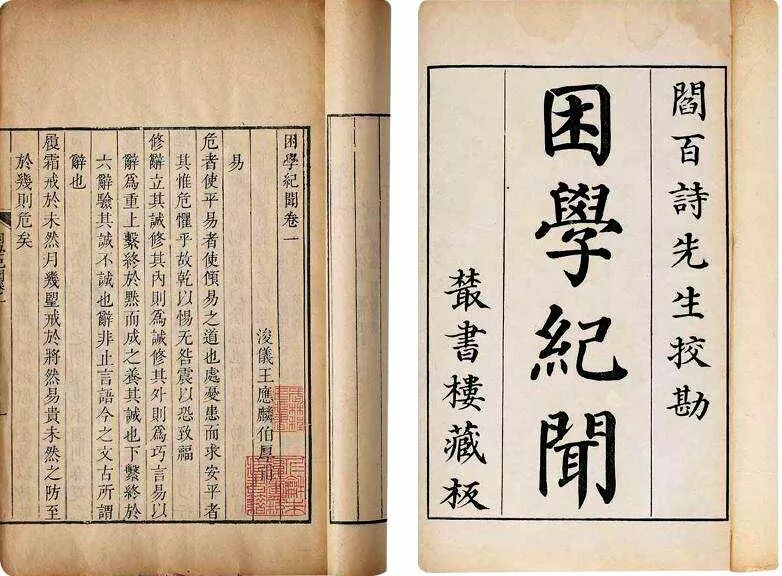 閻百詩先生挍勘
困學紀聞
叢書樓藏板
困學紀聞卷一
浚儀王應麟伯厚甫
易
危者使平易者使傾易之道也處憂患而求安平者
其惟危懼乎故乾以惕无咎震以恐致福
修辭立其誠修其內則為誠修其外則為巧言易以
辭為重上繫終於默而成之養其誠也下繫終於
六辭驗其誠不誠也辭非止言語今之文古所謂
辭也
履霜戒於未然月幾望戒於將然易貴未然之防至
於幾則危矣